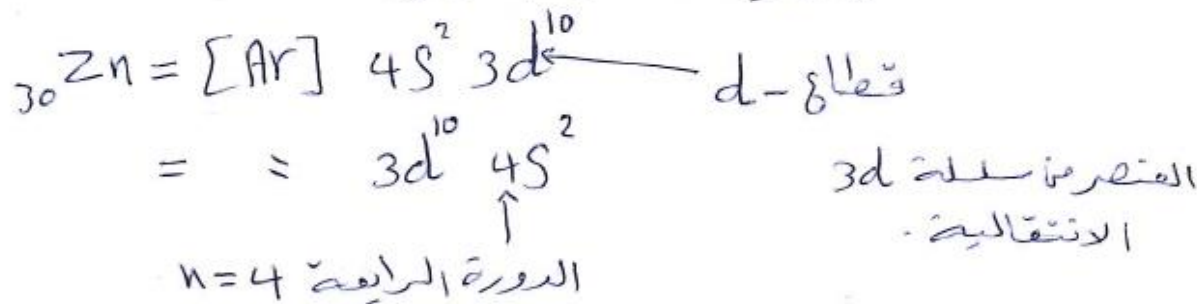 ₃₀Zn = [Ar] 4S² 3d¹⁰ ← قطاع - d
= = 3d¹⁰ 4S²
العنصر من سلسلة 3d
الانتقالية.
n=4 الدورة الرابعة